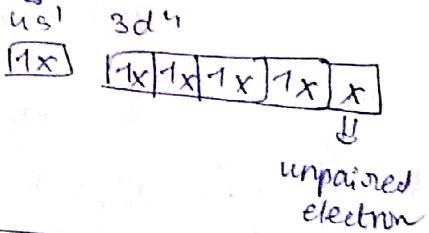 4s¹ 3d⁴
1x 1x 1x 1x 1x x
⇓
unpaired
electron